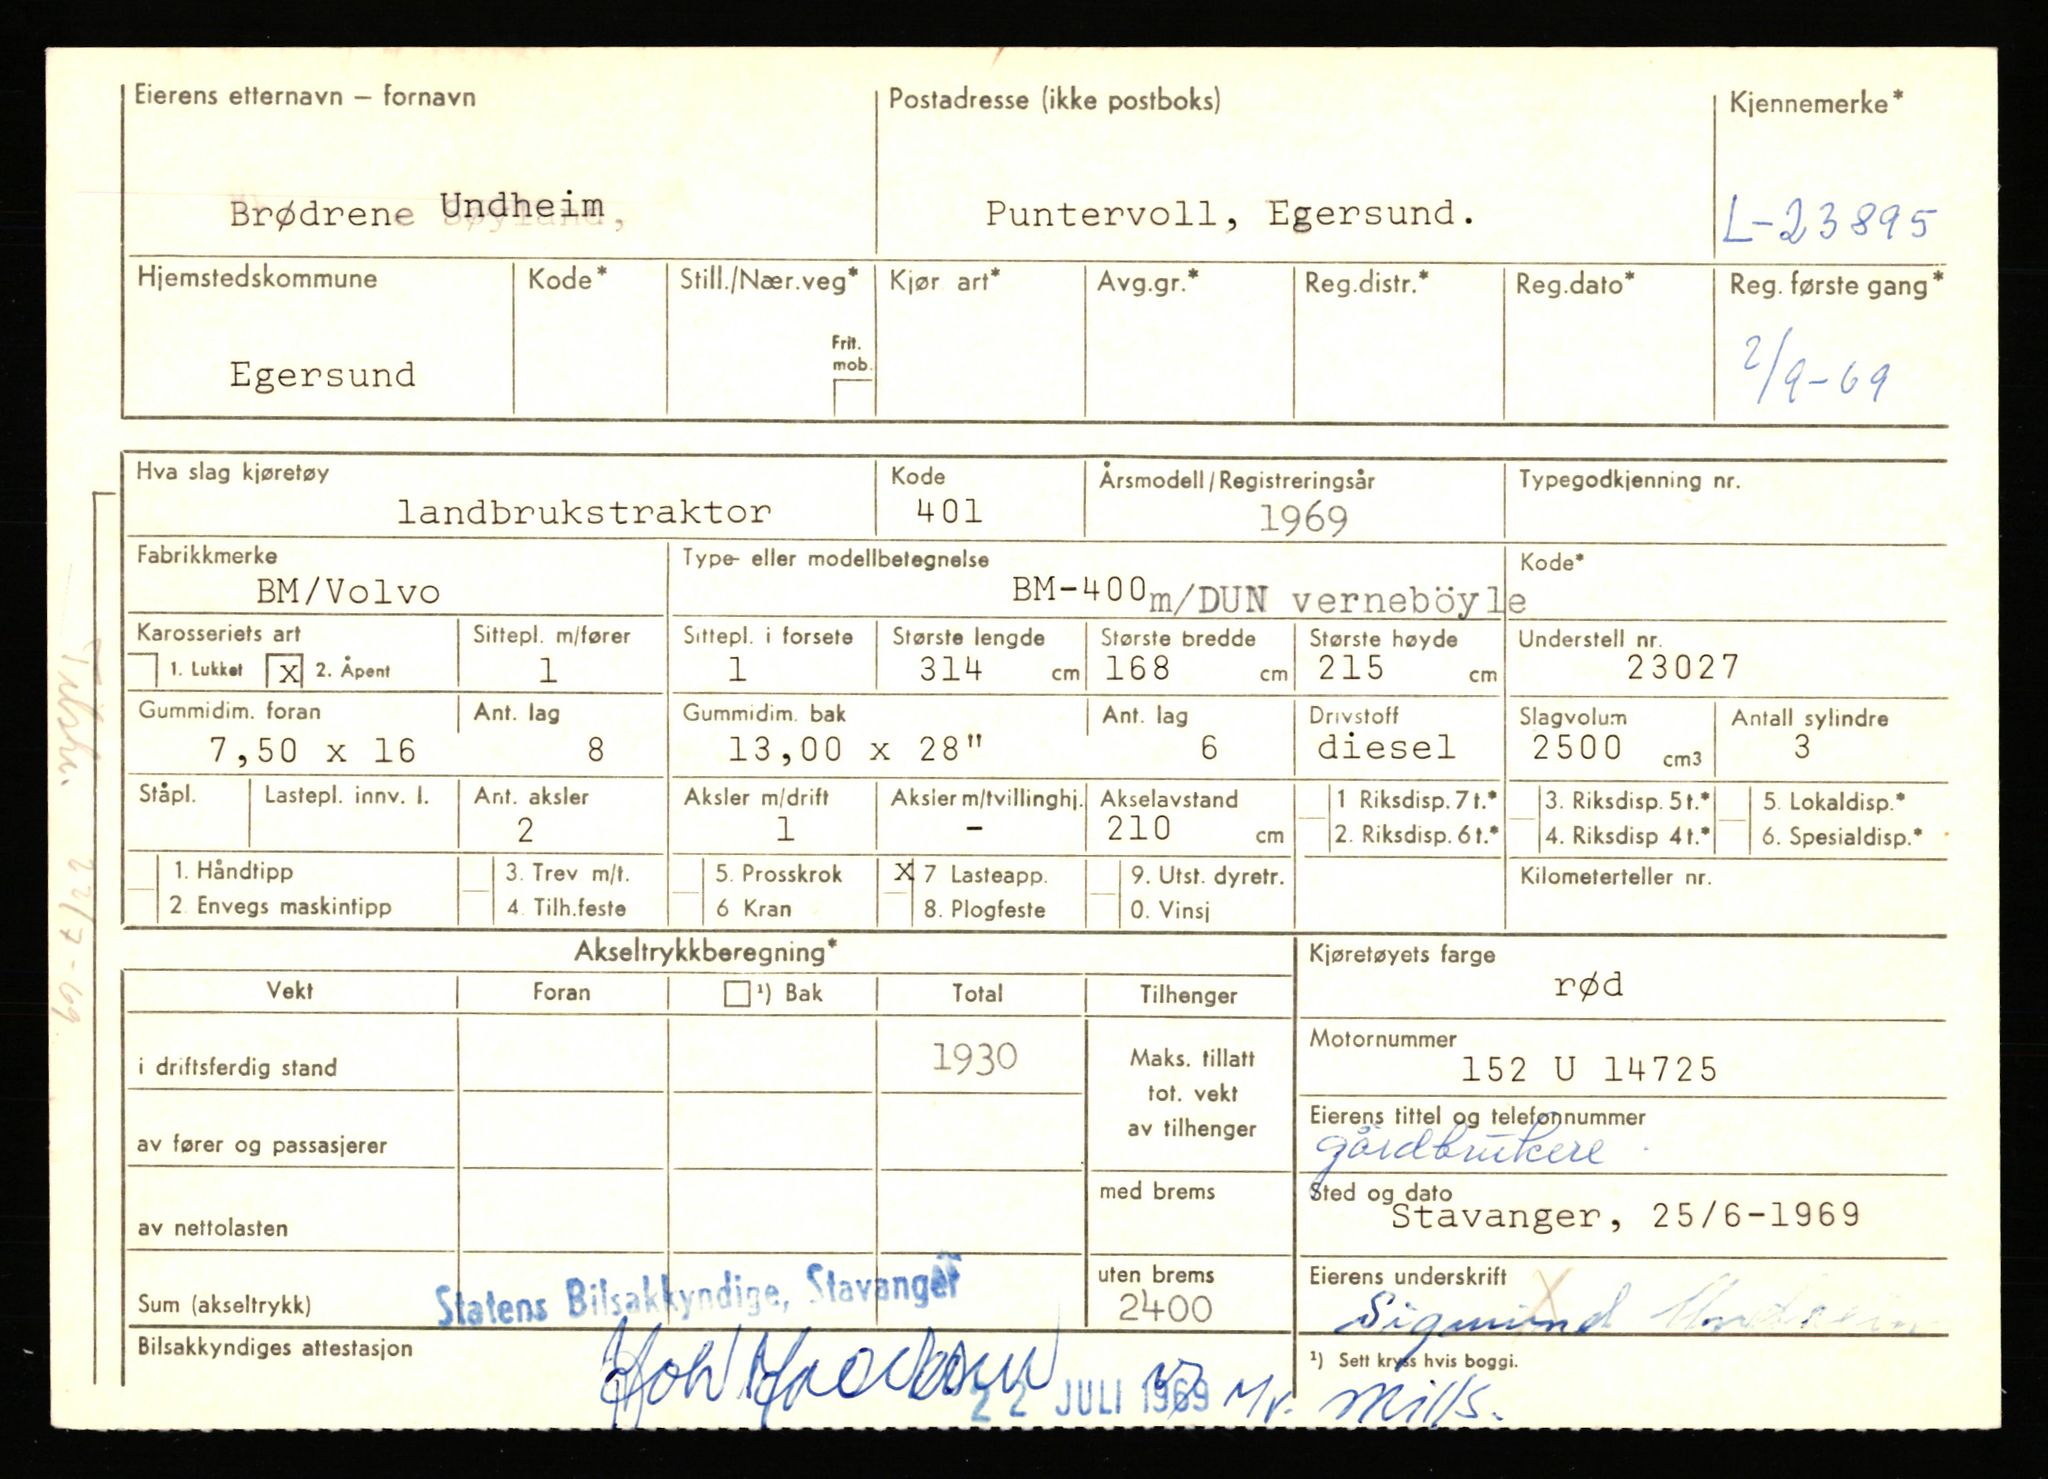 Eierens etternavn – fornavn
Postadresse (ikke postboks)
Kjennemerke*
Brødrene Undheim,
Puntervoll, Egersund.
L-23895
Hjemstedskommune
Kode*
Still./Nær.veg*
Kjør. art*
Avg.gr.*
Reg.distr.*
Reg.dato*
Reg. første gang*
Frit. mob.
Egersund
2/9-69
Hva slag kjøretøy
Kode
Årsmodell/Registreringsår
Typegodkjenning nr.
landbrukstraktor
401
1969
Fabrikkmerke
Type- eller modellbetegnelse
Kode*
BM/Volvo
BM-400 m/DUN verneböyle
Karosseriets art
Sittepl. m/fører
Sittepl. i forsete
Største lengde
Største bredde
Største høyde
Understell nr.
1. Lukket
x 2. Åpent
1
1
314 cm
168 cm
215 cm
23027
Gummidim. foran
Ant. lag
Gummidim. bak
Ant. lag
Drivstoff
Slagvolum
Antall sylindre
7,50 x 16
8
13,00 x 28"
6
diesel
2500 cm3
3
Ståpl.
Lastepl. innv. l.
Ant. aksler
Aksler m/drift
Aksler m/tvillinghj.
Akselavstand
1 Riksdisp. 7 t.*
3. Riksdisp. 5 t.*
5. Lokaldisp.*
2
1
-
210 cm
2. Riksdisp. 6 t.*
4. Riksdisp 4 t.*
6. Spesialdisp.*
1. Håndtipp
3. Trev m/t.
5. Prosskrok
x 7 Lasteapp.
9. Utst. dyretr.
Kilometerteller nr.
2. Envegs maskintipp
4. Tilh.feste
6 Kran
8. Plogfeste
0. Vinsj
Akseltrykkberegning*
Kjøretøyets farge
rød
Vekt
Foran
¹) Bak
Total
Tilhenger
i driftsferdig stand
1930
Maks. tillatt
tot. vekt
av tilhenger
Motornummer
152 U 14725
av fører og passasjerer
Eierens tittel og telefonnummer
gårdbrukere
av nettolasten
med brems
Sted og dato
Stavanger, 25/6-1969
Sum (akseltrykk)
uten brems
2400
Eierens underskrift
Sigmund Undheim
Statens Bilsakkyndige, Stavanger
Bilsakkyndiges attestasjon
22 JULI 1969
¹) Sett kryss hvis boggi.
22/7-69